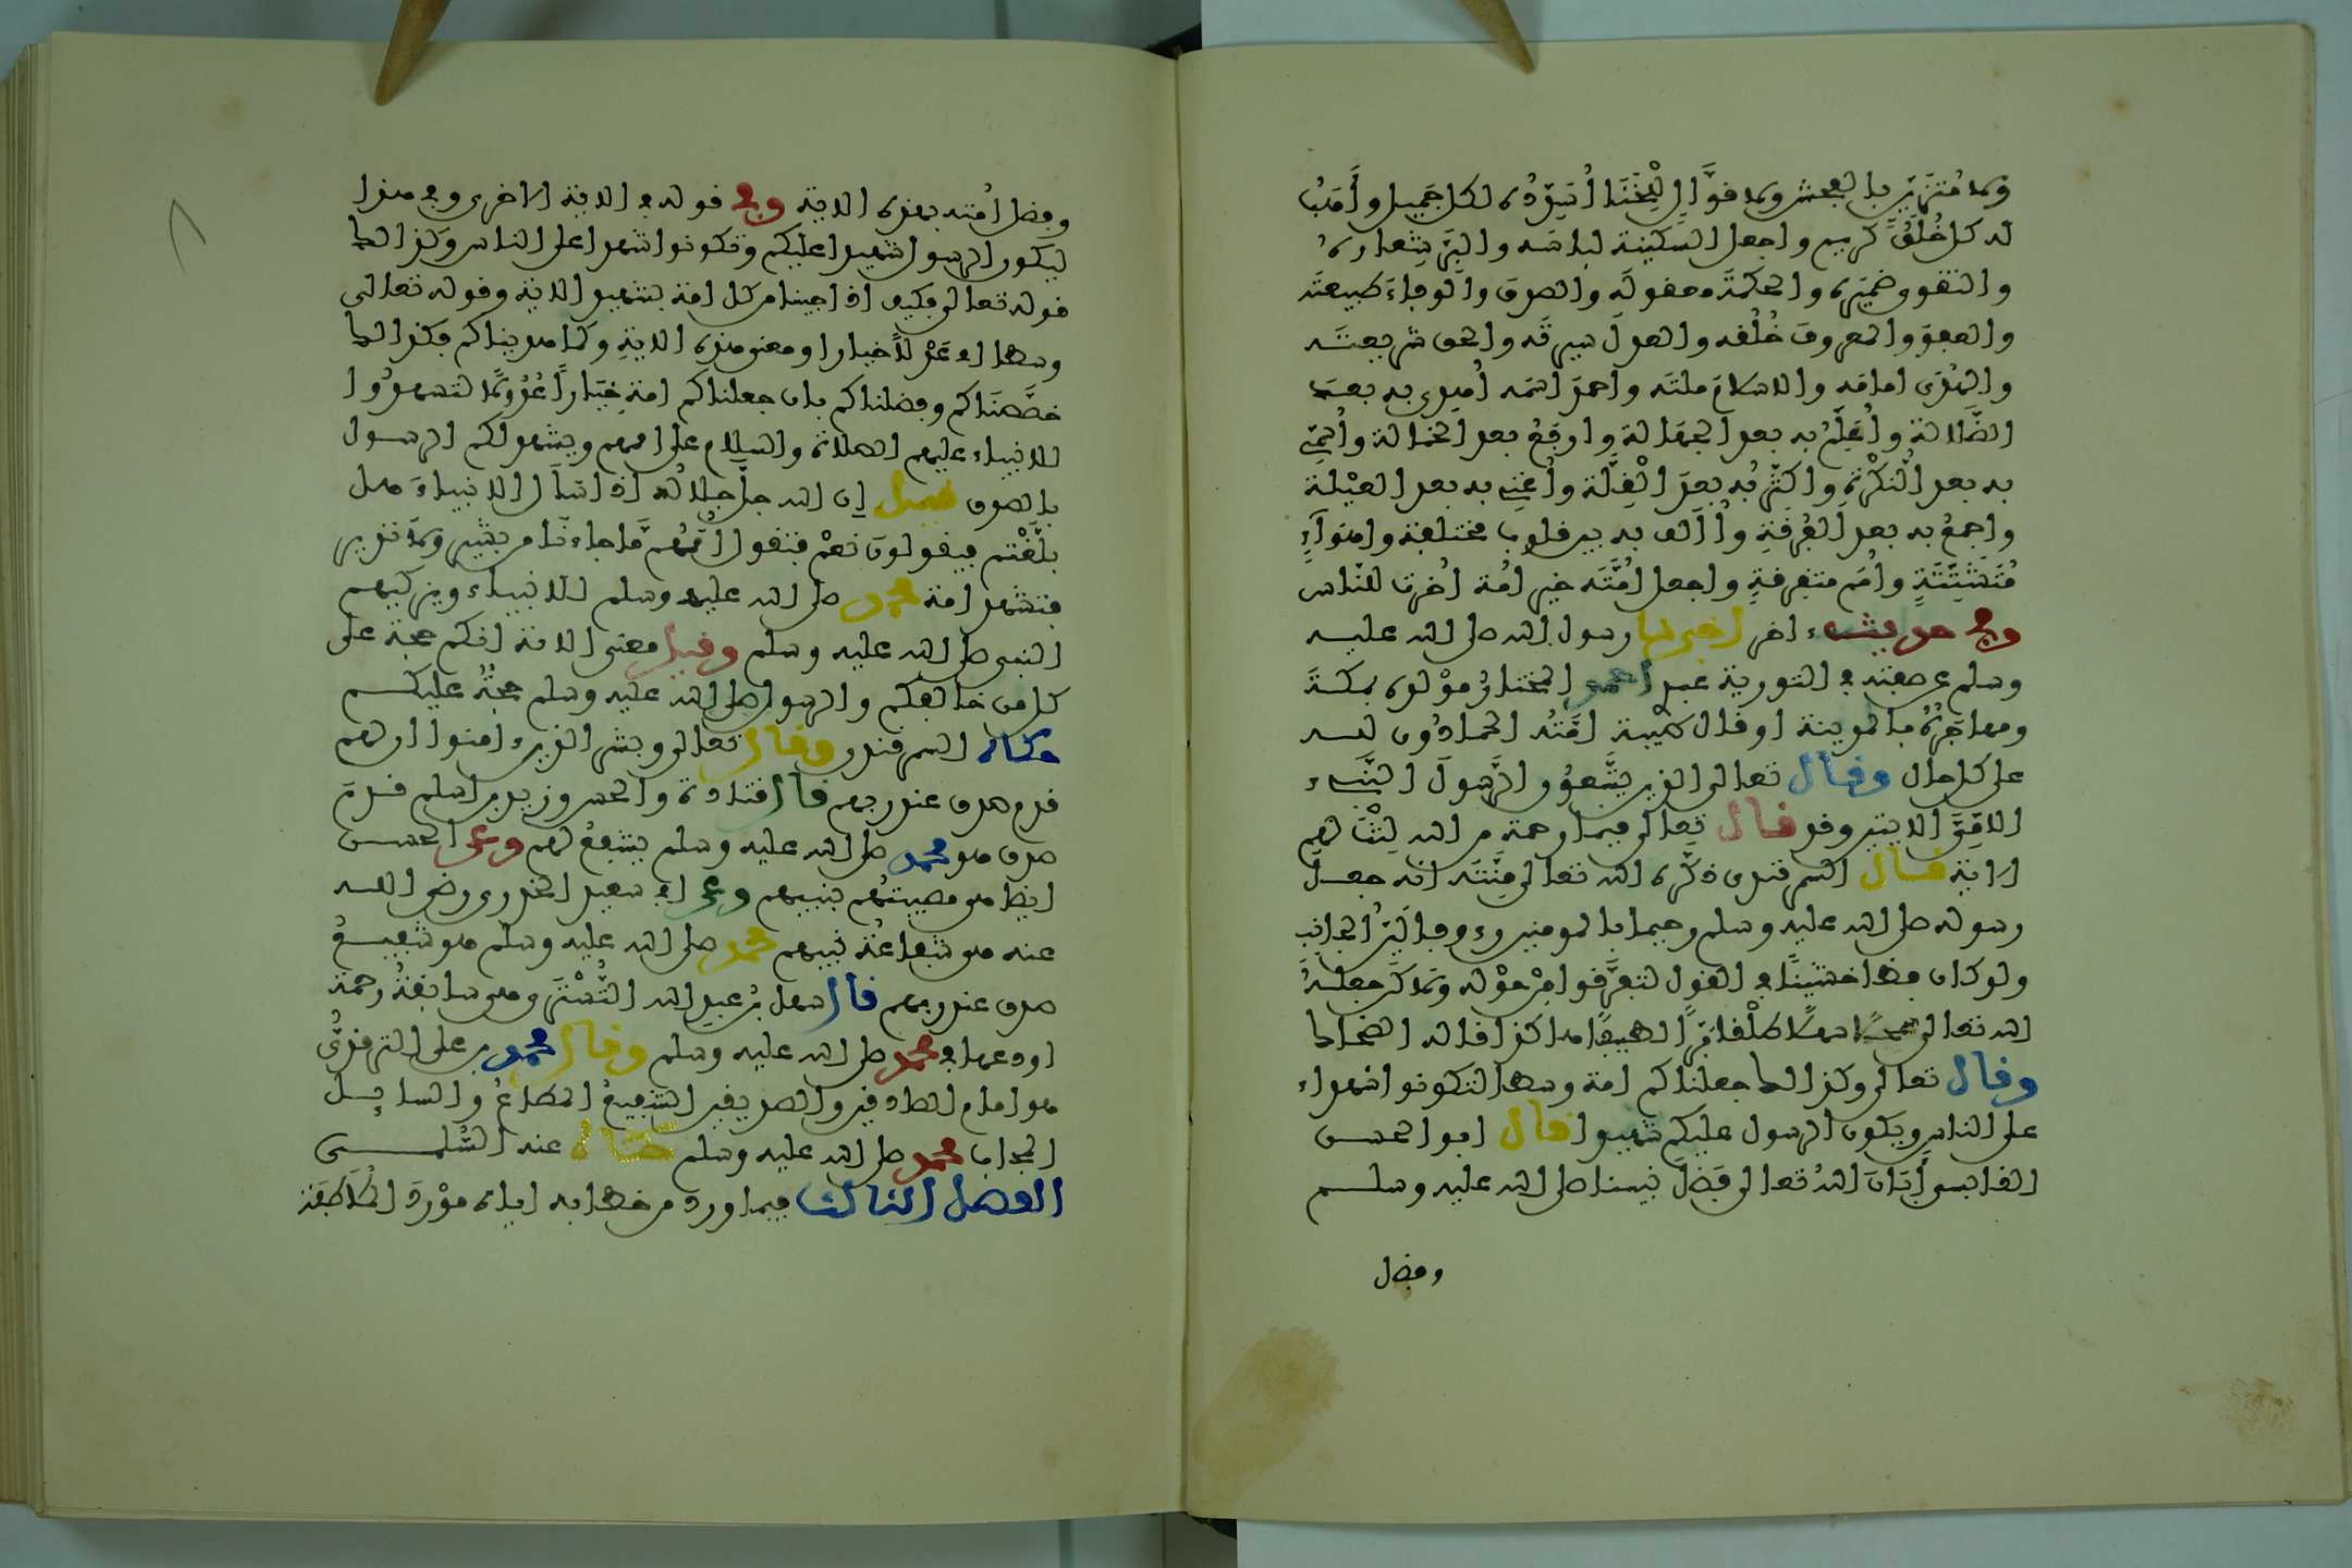 ولا متزين بالفحش ولا قوال للخنا أسدده لكل جميل وأهب
له كل خلق كريم واجعل السكينة لباسه والبر شعاره
والتقوى ضميره والحكمة معقوله والصدق والوفاء طبيعته
والعفو والمعروف خلقه والعدل سيرته والحق شريعته
والهدى امامه والاسلام ملته واحمد اسمه أهدي به بعد
الضلالة وأعلم به بعد الجهالة وارفع بعد الخمالة وأسمي
به بعد النكرة واكثر به بعد القلة وأغني به بعد العيلة
واجمع به بعد الفرقة وأؤلف به بين قلوب مختلفة واهواء
متشتتة وأمم متفرقة واجعل أمته خير أمة أخرجت للناس
وفي حديث اخر اخبرنا رسول الله صلى الله عليه
وسلم عن صفته في التورية عبدي احمد المختار مولده بمكة
ومهاجره بالمدينة او قال طيبة أمته الحمادون لله
على كل حال وقال تعالى الذين يتبعون الرسول النبيء
الامي الايتين وقد قال تعالى فبما رحمة من الله لنت لهم
الاية قال السمرقندي ذكرهم الله تعالى منته انه جعل
رسوله صلى الله عليه وسلم رحيما بالمومنين رءوفا لين الجانب
ولو كان فظا خشينا في القول لتفرقوا من حوله ولاكن جعله
الله تعالى سمحا سهلا طلقا برا لطيفا هاكذا قاله الضحاك
وقال تعالى وكذالك جعلناكم امة وسطا لتكونوا شهداء
على الناس ويكون الرسول عليكم شهيدا قال ابو الحسن
القابسي أبان الله تعالى فضل نبينا صلى الله عليه وسلم
وفضل
وفضل أمته بهذه الاية وفي قوله في الاية الاخرى وفي هذا
ليكون الرسول شهيدا عليكم وتكونوا شهداء على الناس وكذالك
قوله تعالى فكيف اذا جينا من كل امة بشهيد الاية وقوله تعالى
وسطا اي عدلا خيارا ومعنى هذه الاية وكما هديناكم فكذالك
خصصناكم وفضلناكم بان جعلناكم امة خيارا عدولا لتشهدوا
للانبياء عليهم الصلاة والسلام على اممهم ويشهد لكم الرسول
بالصدق قيل إن الله جل جلاله اذا سأل الانبياء هل
بلغتم فيقولون نعم فتقول أممهم ما جاءنا من بشير ولا نذير
فتشهد امة محمد صلى الله عليه وسلم للانبياء ويزكيهم
النبي صلى الله عليه وسلم وقيل معنى الاية انكم حجة على
كل من خالفكم والرسول صلى الله عليه وسلم حجة عليكم
حكاه السمرقندي وقال تعالى وبشر الذين ءامنوا ان لهم
قدم صدق عند ربهم قال قتادة والحسن وزيد بن اسلم قدم
صدق هو محمد صلى الله عليه وسلم يشفع لهم وعن الحسن
ايضا هي مصيبتهم بنبيهم وعن ابي سعيد الخدري رضي الله
عنه هي شفاعة نبيهم محمد صلى الله عليه وسلم هو شفيع
صدق عند ربهم قال سهل بن عبد الله التستري هي سابقة رحمة
اودعها في محمد صلى الله عليه وسلم وقال محمد بن علي الترمذي
هو امام الصادقين والصديقين الشفيع المطاع والسايل
المجاب محمد صلى الله عليه وسلم حكاه عنه السلمي
الفصل الثالث فيما ورد من خطابه اياه مورد الملاطفة